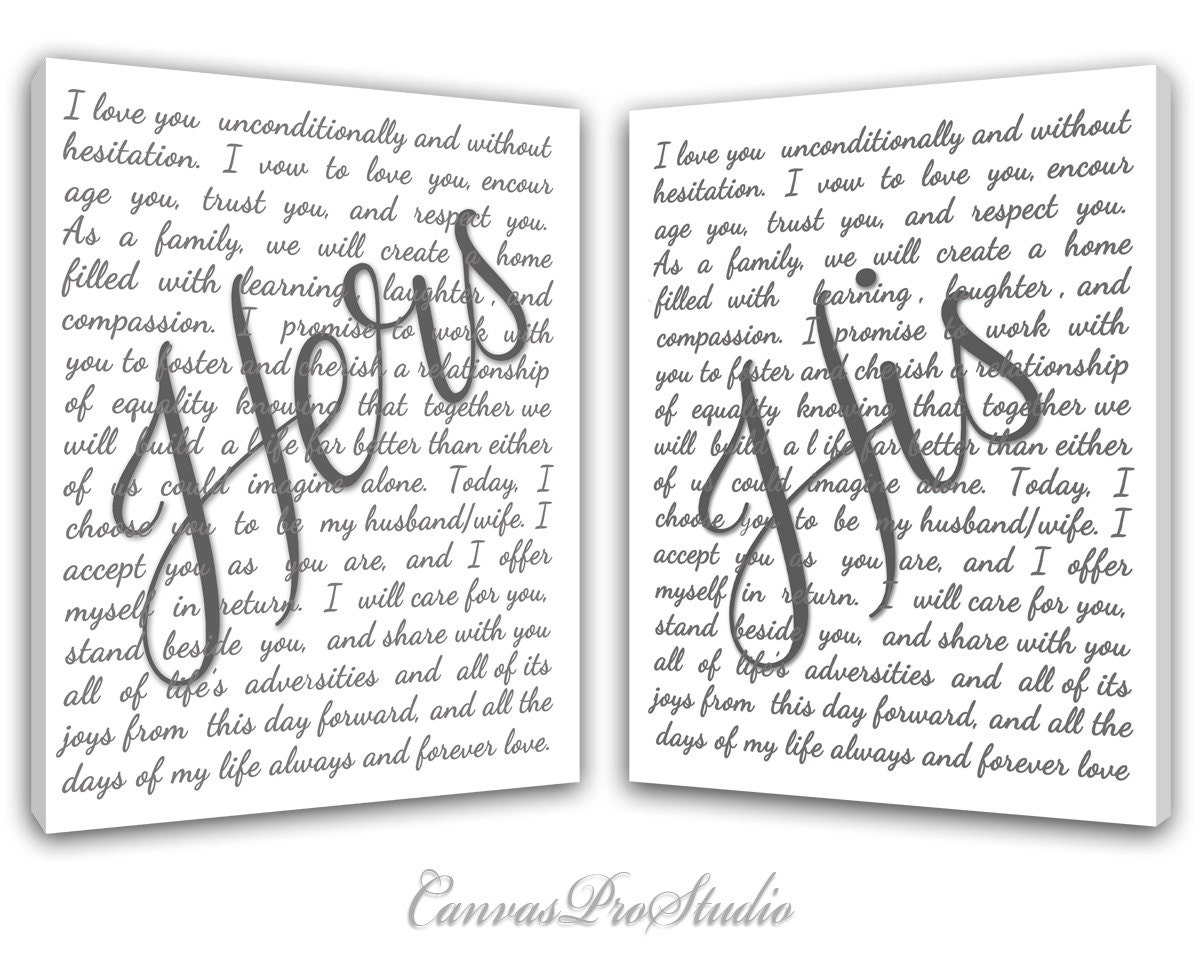 I love you unconditionally and without
hesitation. I vow to love you, encour
age you, trust you, and respect you.
As a family, we will create a home
filled with learning, laughter, and
compassion. I promise to work with
you to foster and cherish a relationship
of equality knowing that together we
will build a life far better than either
of us could imagine alone. Today, I
choose you to be my husband/wife. I
accept you as you are, and I offer
myself in return. I will care for you,
stand beside you, and share with you
all of life's adversities and all of its
joys from this day forward, and all the
days of my life always and forever love.
Hers
I love you unconditionally and without
hesitation. I vow to love you, encour
age you, trust you, and respect you.
As a family, we will create a home
filled with learning, laughter, and
compassion. I promise to work with
you to foster and cherish a relationship
of equality knowing that together we
will build a life far better than either
of us could imagine alone. Today, I
choose you to be my husband/wife. I
accept you as you are, and I offer
myself in return. I will care for you,
stand beside you, and share with you
all of life's adversities and all of its
joys from this day forward, and all the
days of my life always and forever love
His
CanvasProStudio